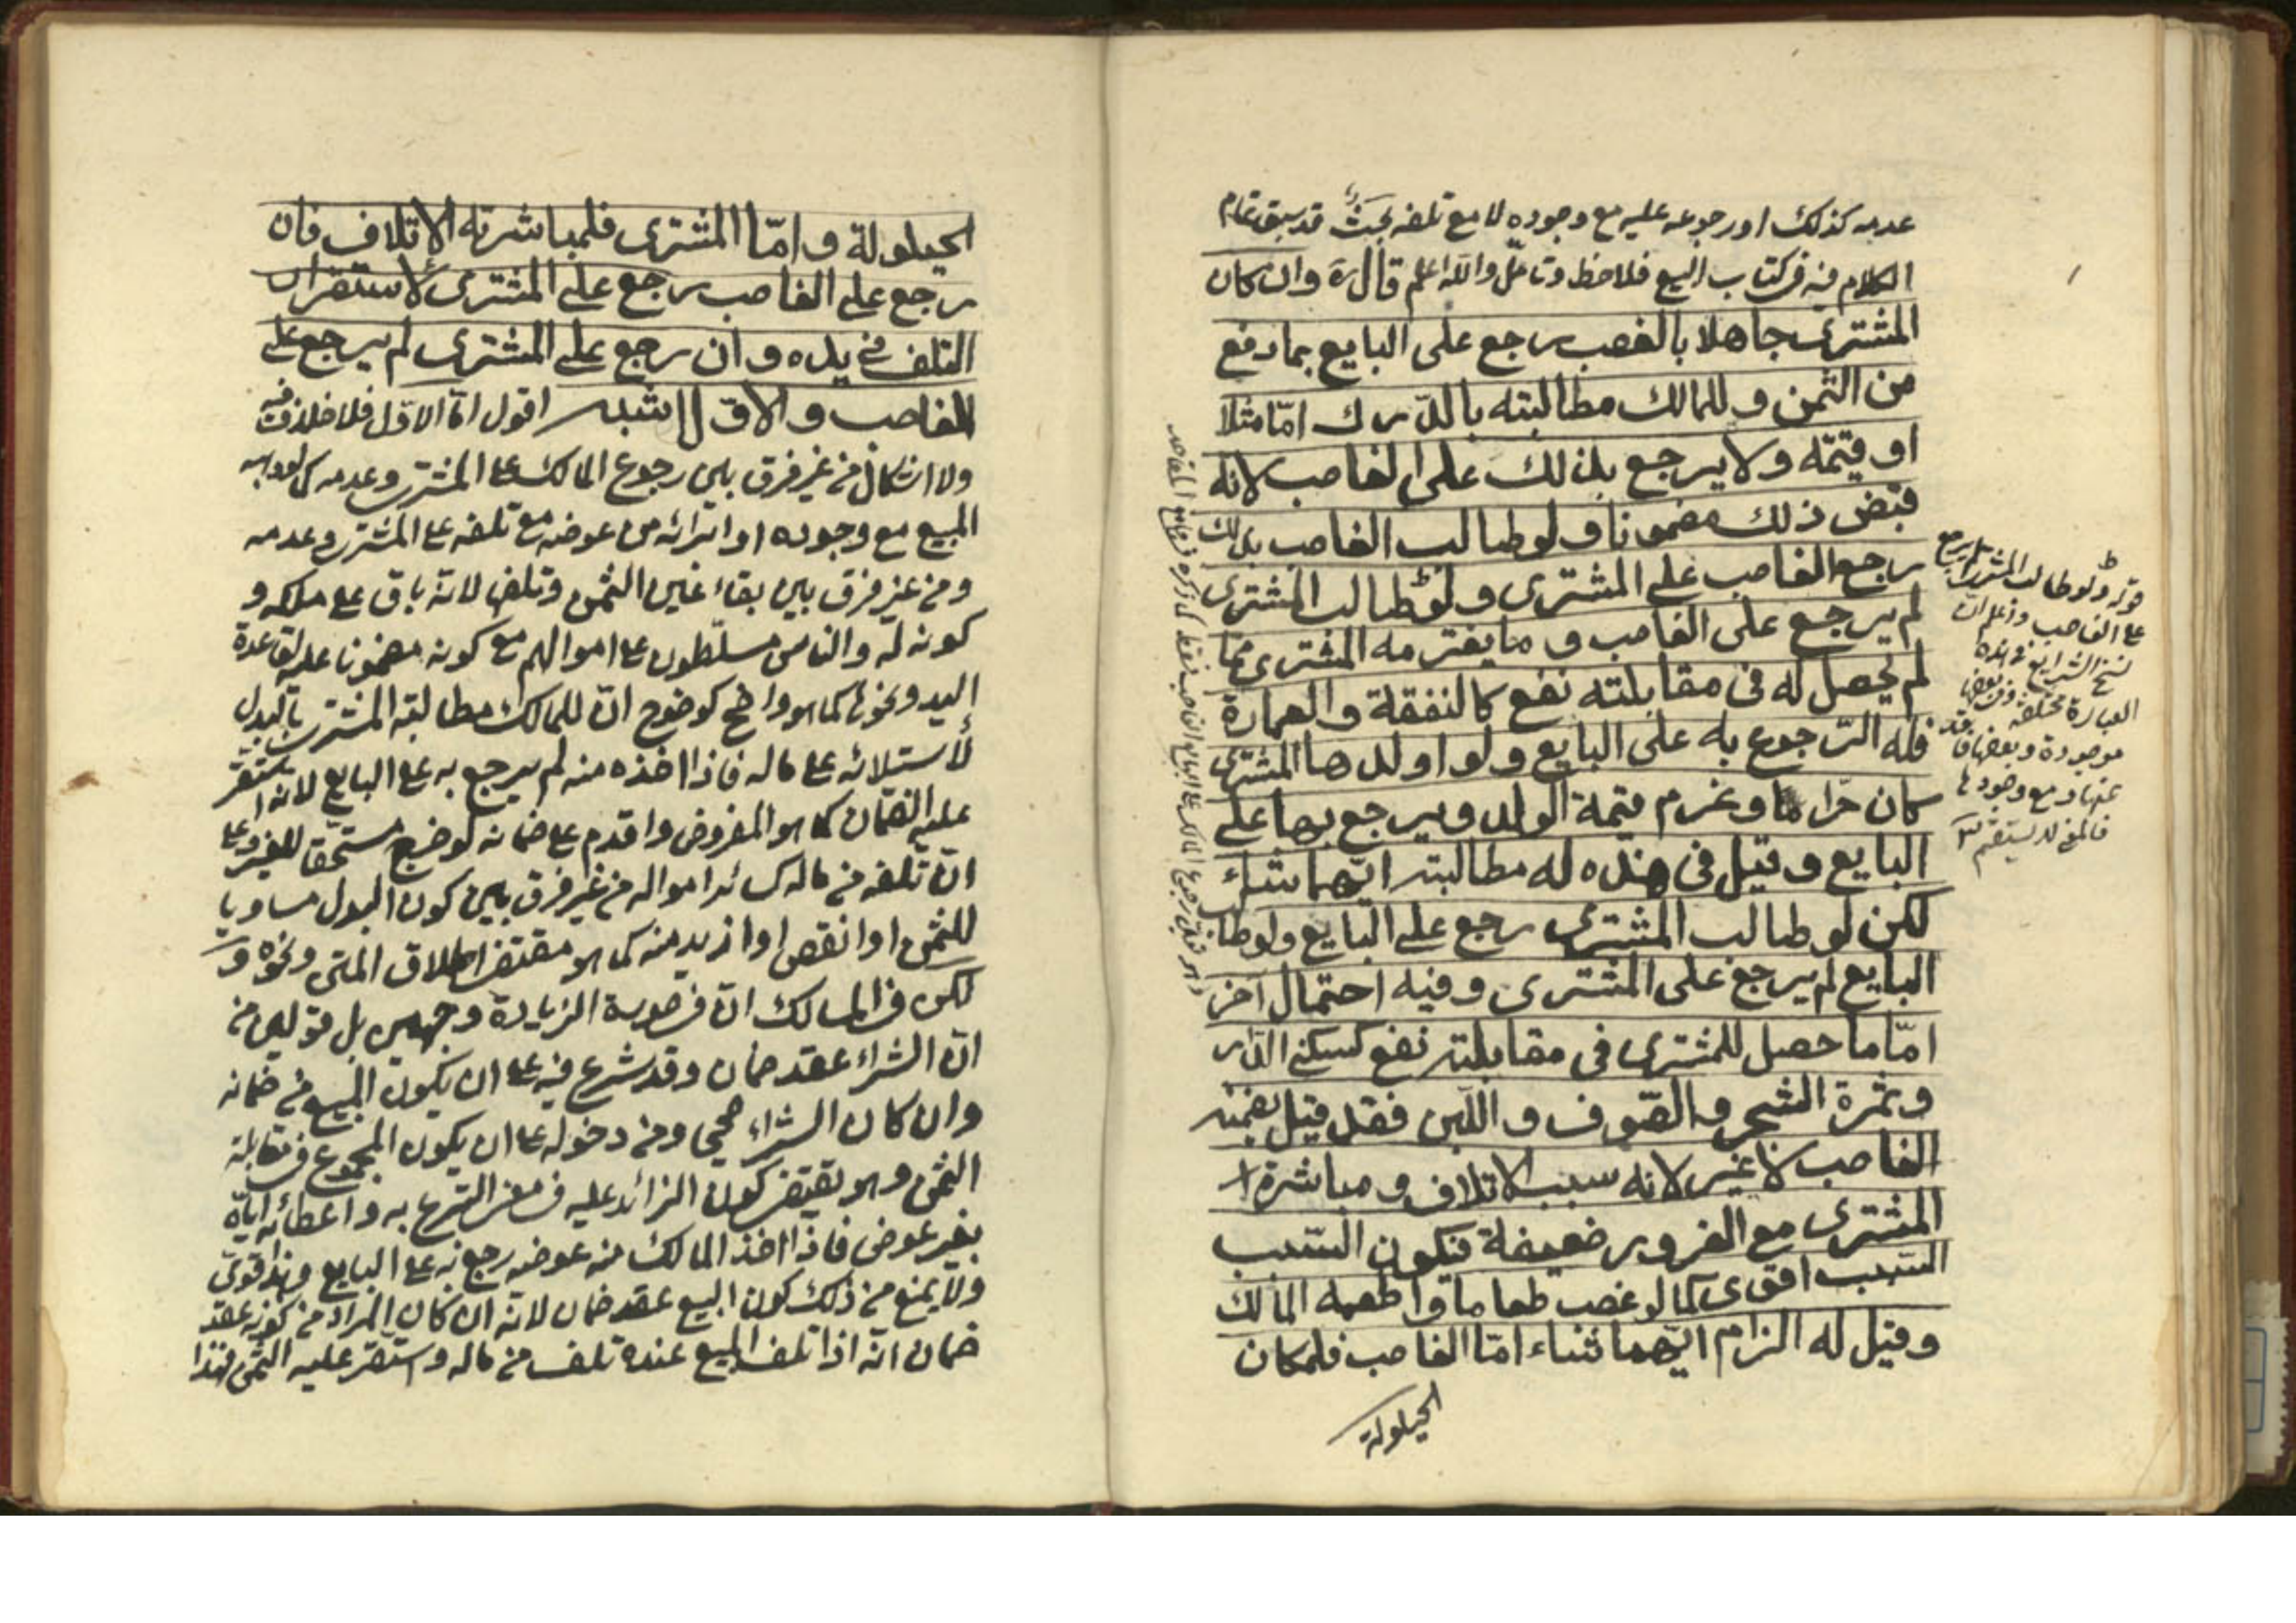 عدمه كذلك او رجوعه عليه مع وجوده لا مع تلفه بحث قد سبق تمام
الكلام فيه في كتاب البيع فلاحظ وتامّل والله اعلم قال ره وان كان
المشتري جاهلا بالغصب رجع على البايع بما دفع
من الثمن و للمالك مطالبته بالدّرك امّا مثلا
او قيمته ولا يرجع بذلك على الغاصب لانه
قبض ذلك مضمونا و لو طالب الغاصب بذلك
رجع الغاصب على المشتري و لو طالب المشتري
لم يرجع على الغاصب و ما يغترمه المشتري ممّا
لم يحصل له في مقابلته نفع كالنفقة و العمارة
فله الرّجوع به على البايع و لو اولدها المشتري
كان حرّا و غرم قيمة الولد و يرجع بها على
البايع و قيل في هذه له مطالبة ايّهما شاء
لكن لو طالب المشتري رجع على البايع ولو طالب
البايع لم يرجع على المشتري و فيه احتمال آخر
امّا ما حصل للمشتري في مقابلته نفع كسكنى الدّار
و ثمرة الشجر و الصّوف و اللّبن فقد قيل يضمنه
الغاصب لا غير لانه سبب الاتلاف و مباشرة
المشتري مع الغرور ضعيفة فيكون السّبب
السّبب اقوى كما لو غصب طعاما و اطعمه المالك
و قيل له الزام ايّهما شاء امّا الغاصب فلمكان
الحيلولة
قوله ولو طالب المشتري لم يرجع
على الغاصب واعلم ان
نسخ الشرايع في هذه
العبارة مختلفة وفي بعضها
موجودة وبعضها فاقد
عنها ومع وجودها
الحيلولة و امّا المشتري فلمباشرته الاتلاف فان
رجع على الغاصب رجع على المشتري لاستقرار
التلف في يده و ان رجع على المشتري لم يرجع على
الغاصب و الاوّل اشبه اقول امّا الاوّل فلا خلاف فيه
ولا اشكال من غير فرق بين رجوع المالك على المشتري وعدمه
المبيع مع وجوده او ابرائه من عوضه مع تلفه على المشتري وعدمه
ومن غير فرق بين بقاء عين الثمن وتلفها لانه باق على ملكه و
كونه له والناس مسلّطون على اموالهم مع كونه مضمونا عليه لقاعدة
اليد ونحوها كما هو واضح كوضوح انّ للمالك مطالبة المشتري بالبدل
لاستيلائه على ماله فاذا اخذه منه لم يرجع به على البايع لانه استقر
عليه الضمان كما هو المفروض واقدم على ضمانه لو خرج مستحقا للغير وعلى
انّ تلفه من ماله كسائر امواله من غير فرق بين كون البدل مساويا
للثمن او انقص او ازيد منه كما هو مقتضى اطلاق المتن ونحوه و
لكن في المسالك انّ في صورة الزيادة وجهين بل قولين من
انّ الشراء عقد ضمان وقد شرع فيه على ان يكون المبيع من ضمانه
وان كان الشراء صحيحا ومن دخوله على ان يكون المجموع في مقابلة
الثمن وهو يقتضي كون الزائد عليه في معنى التبرع به واعطائه ايّاه
بغير عوض فاذا اخذ المالك منه عوضه رجع به على البايع وهذا قوي
ولا يمنع من ذلك كون البيع عقد ضمان لانه ان كان المراد من كونه عقد
ضمان انّه اذا تلف المبيع عنده تلف من ماله واستقر عليه الثمن فهذا